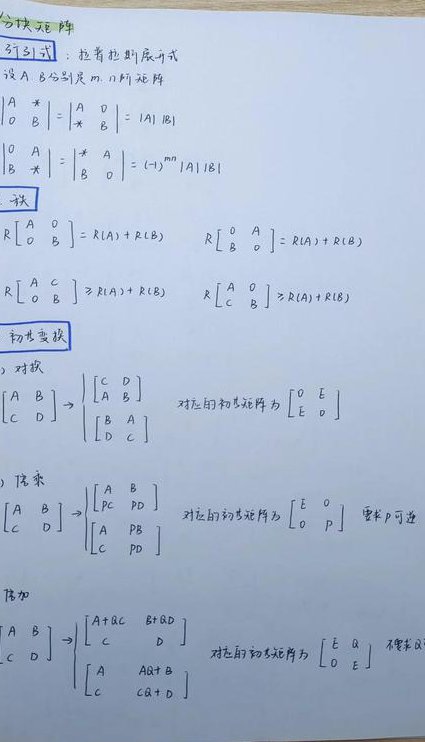 分块矩阵
行列式：拉普拉斯展开式
设A.B分别是m.n阶矩阵
|A * ; 0 B| = |A 0 ; * B| = |A||B|
|0 A ; B *| = |* A ; B 0| = (-1)^mn |A||B|
秩
R[A 0 ; 0 B] = R(A)+R(B) R[0 A ; B 0] = R(A)+R(B)
R[A C ; 0 B] ≥ R(A)+R(B) R[A 0 ; C B] ≥ R(A)+R(B)
初等变换
) 对换
[A B ; C D] → [C D ; A B]
[B A ; D C] 对应的初等矩阵为 [0 E ; E 0]
) 倍乘
[A B ; C D] → [A B ; PC PD]
[A PB ; C PD] 对应的初等矩阵为 [E 0 ; 0 P] 要求P可逆
倍加
[A B ; C D] → [A+QC B+QD ; C D]
[A AQ+B ; C CQ+D] 对应的初等矩阵为 [E Q ; 0 E] 不要求Q